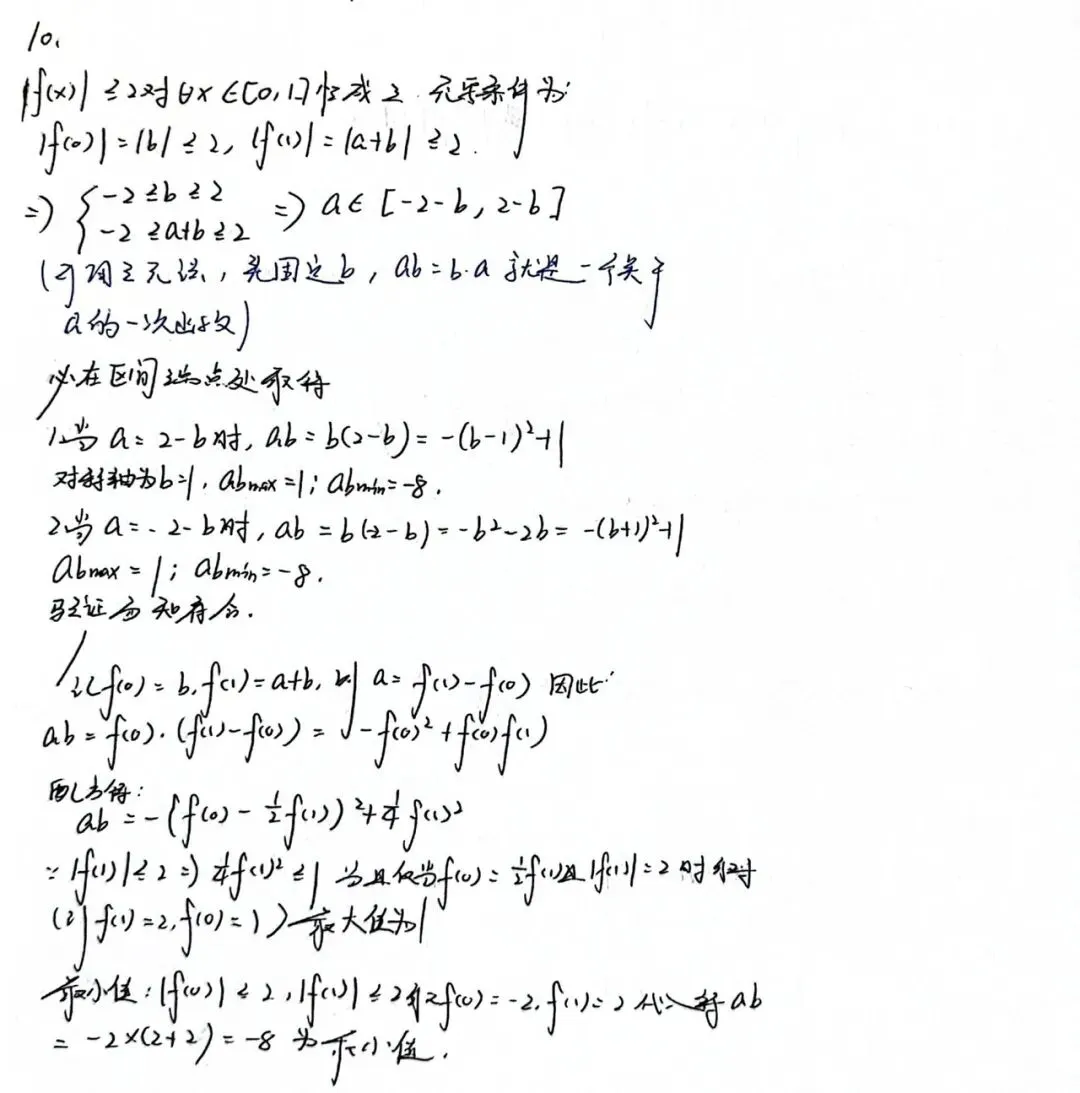 10.
|f(x)| ≤2对∀x∈[0,1]恒成立 充要条件为:
|f(0)|=|b|≤2, |f(1)|=|a+b|≤2.
=> { -2≤b≤2 -2≤a+b≤2 => a∈[-2-b, 2-b]
(利用主元法, 先固定b, ab=b·a 就是一个关于
a的一次函数)
必在区间端点处取得
1.当a=2-b时, ab=b(2-b)=-(b-1)²+1
对称轴为b=1, abmax=1; abmin=-8.
2.当a=-2-b时, ab=b(-2-b)=-b²-2b=-(b+1)²+1
abmax=1; abmin=-8.
验证 知符合.
记f(0)=b, f(1)=a+b, 则 a=f(1)-f(0) 因此:
ab=f(0)·(f(1)-f(0))=-f(0)²+f(0)f(1)
配方得:
ab=-(f(0)-1/2f(1))²+1/4f(1)²
∵|f(1)|≤2=>1/4f(1)²≤1 当且仅当f(0)=1/2f(1)且|f(1)|=2时取得
(例f(1)=2, f(0)=1) 最大值为1
最小值: |f(0)|≤2, |f(1)|≤2 取f(0)=-2, f(1)=2代入得ab
=-2×(2+2)=-8 为最小值.